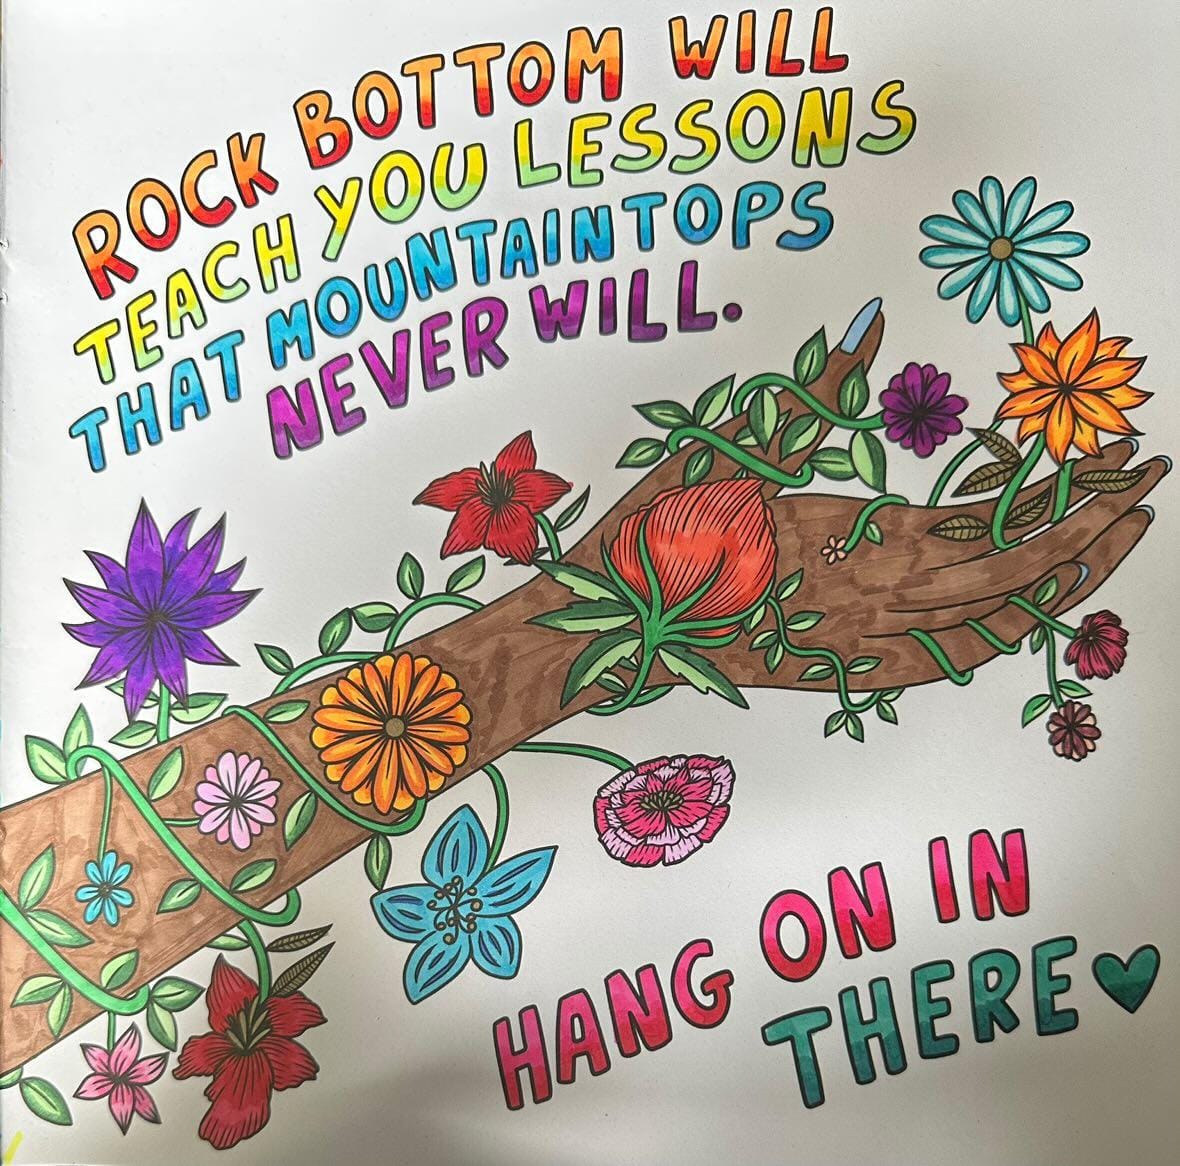 ROCK BOTTOM WILL
TEACH YOU LESSONS
THAT MOUNTAINTOPS
NEVER WILL.
HANG ON IN
THERE